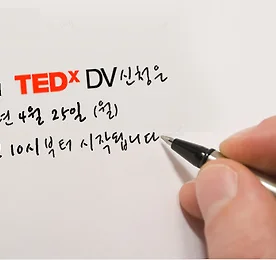 TEDx DV 신청은
년 4월 25일 (월)
10시부터 시작됩니다